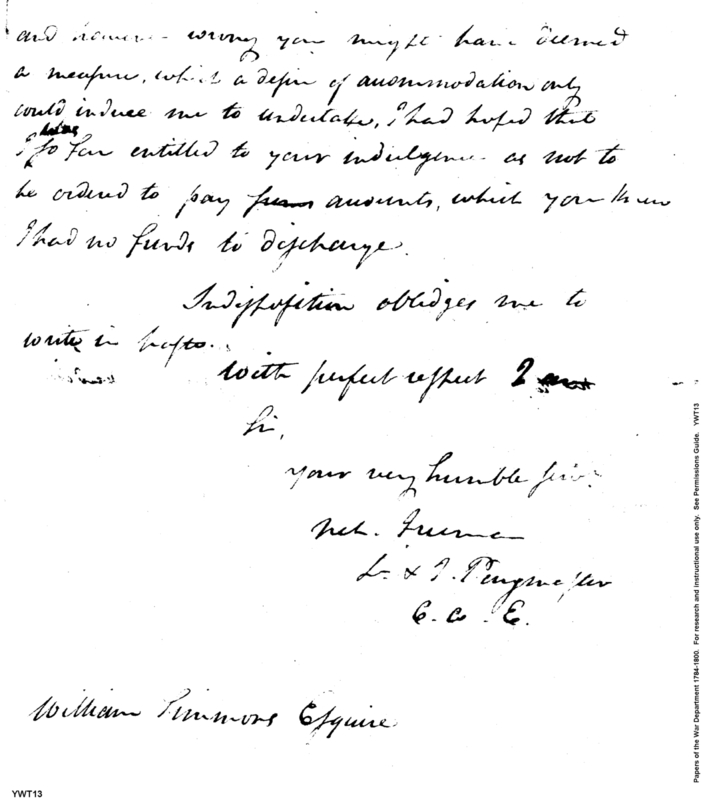 and however wrong you might have deemed
a measure, which a desire of accommodation only
could induce me to undertake, I had hoped that
I was so far entitled to your indulgence as not to
be ordered to pay sums accounts, which you knew
I had no funds to discharge.
Indisposition obledges me to
write in haste.
With perfect respect I am
Sir,
your very humble Servt
Net. Freeman
Lt. & P. Paymaster
C. A. E.
William Simmons Esquire
YWT13
Papers of the War Department 1784-1800. For research and instructional use only. See Permissions Guide. YWT13